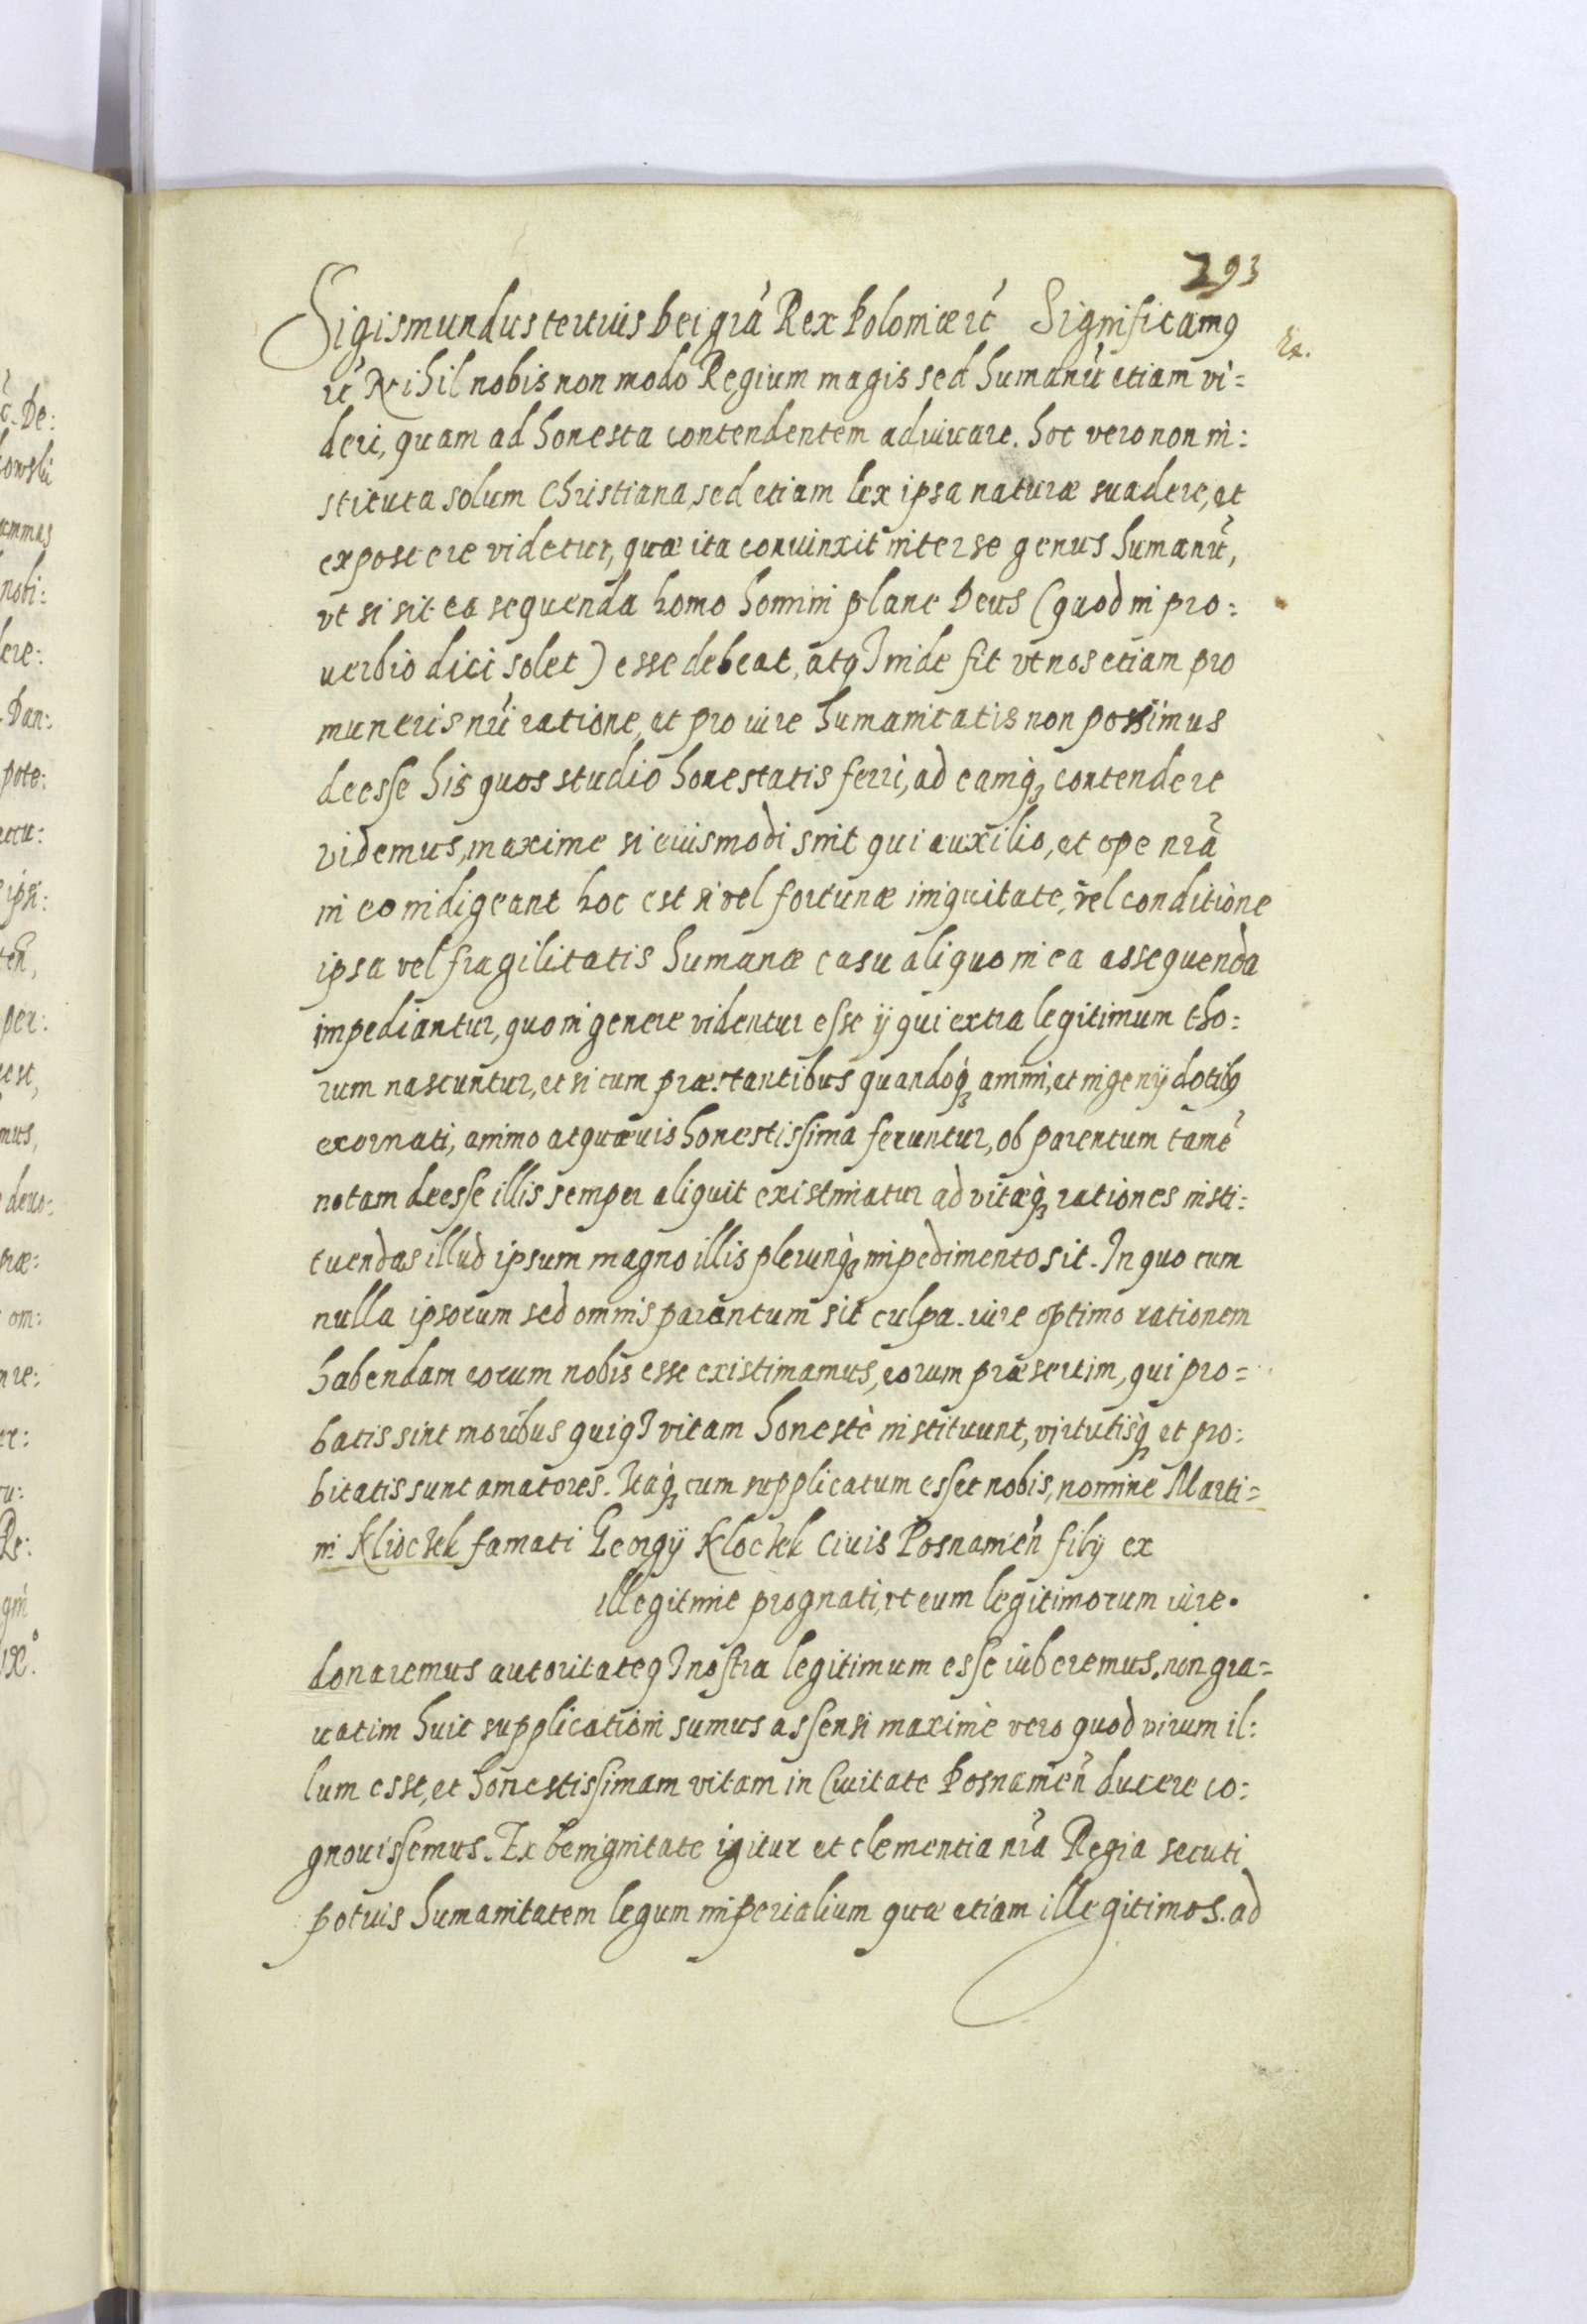 293
Sigismundus tertius Dei grã Rex Poloniæ rc̃ Significamꝰ
rc̃ Nihil nobis non modo Regium magis sed humanũ etiam vi=
deri, quam ad honesta contendentem adiuuare. hoc vero non in:
stituta solum Christiana, sed etiam lex ipsa naturæ suadere, et
exposcere videtur, quæ ita conuinxit inter se genus humanũ,
vt si sit ea sequenda homo homini plane Deus (quod in pro:
uerbio dici solet) esse debeat, atqꝫ inde fit vt nos etiam pro
muneris nr̃i ratione, et pro iure humanitatis non possimus
deesse his quos studio honestatis ferri, ad eamqꝫ contendere
videmus, maxime si eiusmodi sint qui auxilio, et ope nr̃a
in eo indigeant hoc est si vel fortunæ iniquitate, vel conditione
ipsa vel fragilitatis humanæ casu aliquo in ea assequenda
impediantur, quo in genere videntur esse ÿ qui extra legitimum tho:
rum nascuntur, et si cum præstantibus quandoqꝫ animi, et ingenÿ dotibꝰ
exornati, animo at quævis honestissima feruntur, ob parentum tamẽ
notam deesse illis semper aliquit existimatur ad vitæqꝫ rationes insti:
tuendas illud ipsum magno illis plerunqꝫ impedimento sit. In quo cum
nulla ipsorum sed omnis parentum sit culpa. iure optimo rationem
habendam eorum nobis esse existimamus, eorum præsertim, qui pro=
batis sint moribus quiqꝫ vitam honestè instituunt, virtutisqꝫ et pro:
bitatis sunt amatores. Itaqꝫ cum supplicatum esset nobis, nomine Marti=
ni Klioczek famati Georgÿ Kloczek Ciuis Posnamen̄ filÿ ex
illegitimè prognati, vt eum legitimorum iure.
donaremus autoritateqꝫ nostra legitimum esse iuberemus, non gra=
uatim huic supplicationi sumus assensi maximè vero quod virum il:
lum esse, et honestissimam vitam in Ciuitate Posnamen̄ ducere co:
gnouissemus. Ex benignitate igitur et clementia nr̃a Regia secuti
potius humanitatem legum imperialium quæ etiam illegitimos. ad